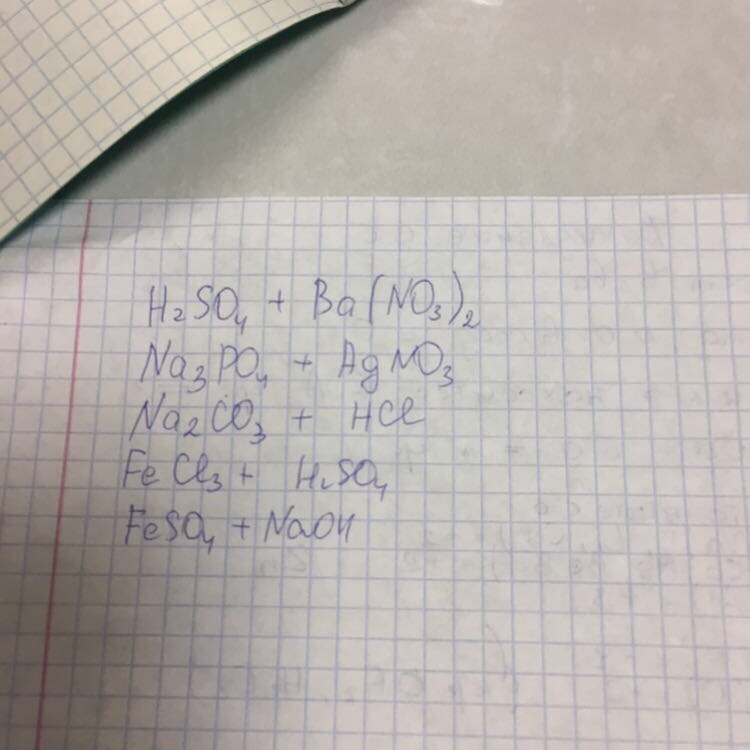 H₂SO₄ + Ba(NO₃)₂
Na₃PO₄ + AgNO₃
Na₂CO₃ + HCl
FeCl₃ + H₂SO₄
FeSO₄ + NaOH